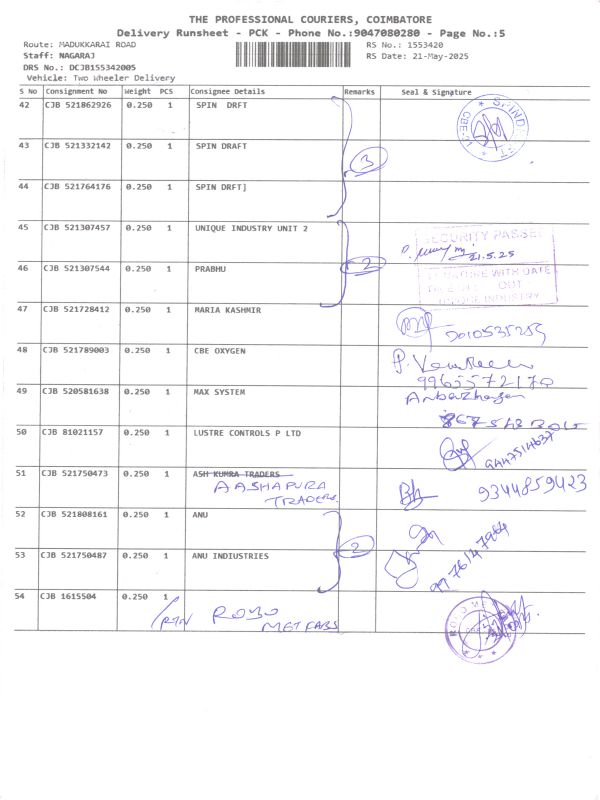 THE PROFESSIONAL COURIERS, COIMBATORE
Delivery Runsheet - PCK - Phone No.:9047080280 - Page No.:5
Route: MADUKKARAI ROAD RS No.: 1553420
Staff: NAGARAJ RS Date: 21-May-2025
DRS No.: DCJB155342005
Vehicle: Two Wheeler Delivery
S No Consignment No Weight PCS Consignee Details Remarks Seal & Signature
42 CJB 521862926 0.250 1 SPIN DRFT
43 CJB 521332142 0.250 1 SPIN DRAFT
3
44 CJB 521764176 0.250 1 SPIN DRFT]
45 CJB 521307457 0.250 1 UNIQUE INDUSTRY UNIT 2
SECURITY PASSED
21.5.25
46 CJB 521307544 0.250 1 PRABHU 2
WITH DATE
OUT
INDUSTRY
47 CJB 521728412 0.250 1 MARIA KASHMIR
48 CJB 521789003 0.250 1 CBE OXYGEN
9965572170
49 CJB 520581638 0.250 1 MAX SYSTEM Anbazhagan
50 CJB 81021157 0.250 1 LUSTRE CONTROLS P LTD
9447514637
51 CJB 521750473 0.250 1 ASH KUMRA TRADERS
AASHAPURA
TRADERS
9344859423
52 CJB 521808161 0.250 1 ANU
2
53 CJB 521750487 0.250 1 ANU INDIUSTRIES
9976147964
54 CJB 1615504 0.250 1
/RTN ROBO
MET FABS